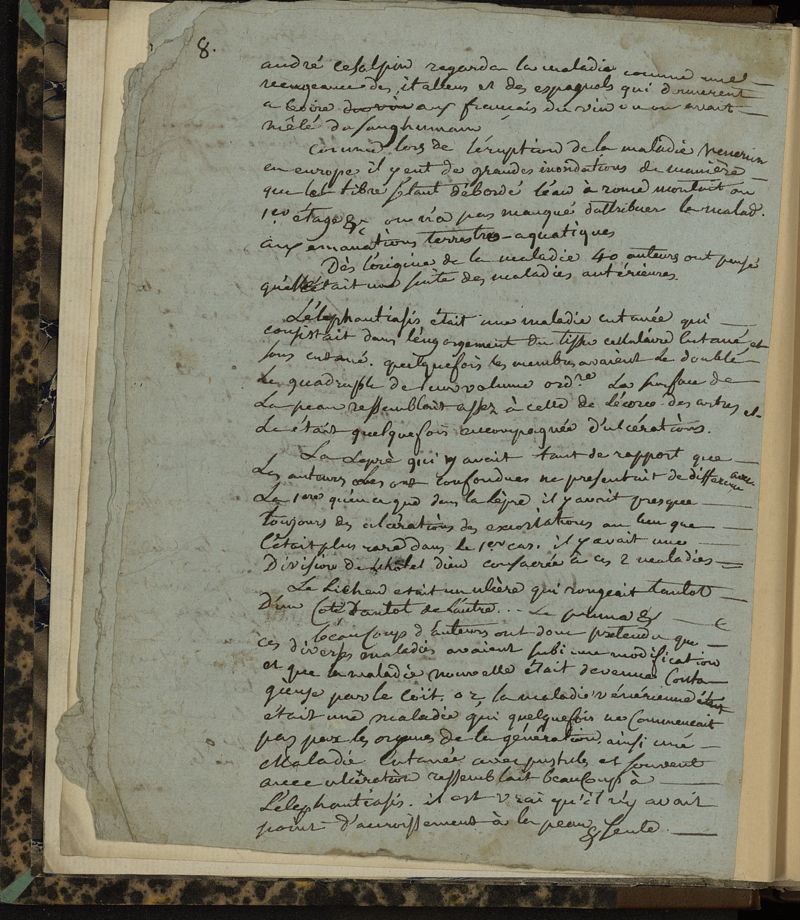 8.
andré cesalpin regarda la maladie comme une
vengeance des italiens et des espagnols qui donnerent
a boire du vin aux francais du vin ou on avait
mêlé du sang humain
Comme lors de l'eruption de la maladie venerienn
en europe il y eut de grandes inondations de manière
que le tibre s'étant débordé l'eau à rome montait au
1er étage &c on n'a pas manqué d'attribuer la malad.
aux emanations terrestres-aquatiques
Dès l'origine de la maladie 40 auteurs ont pensé
qu'elle était une suite des maladies antérieures.
L'élephantiasis était une maladie cutanée qui
consistait dans l'engorgement du tissu cellulaire cutané et
sous cutané. quelquefois les membres avaient le double
le quadruple de leur volume ordre La surface de
la peau ressemblait assez à celle de l'écorce des arbres et
le était quelquefois accompagnée d'ulcérations.
La Lepre qui y avait tant de rapport que
les auteurs les ont confondues ne presentait de différence avec
la 1ere qu'en ce que dans la lèpre il y avait presque
toujours des ulcérations des excoriations au lieu que
c'était plus rare dans le 1er cas. il y avait une
Division de l'hotel dieu consacrée à ces 2 maladies
Le Lichen etait un ulcère qui rongeait tantot
d'un coté tantot de l'autre... Le &
beaucoup d'auteurs ont donc pretendu que
ces diverses maladies avaient subi une modification
et que la maladie nouvelle était devenue conta
gieuse par le coit. or, la maladie vénérienne étant
était une maladie qui quelquefois ne commencait
pas par les organes de la génération, ainsi une
Maladie cutanée avec pustules et souvent
avec ulcération ressemblait beaucoup à
L'élephantiasis. il est vrai qu'il n'y avait
point d'accroissement à la peau &